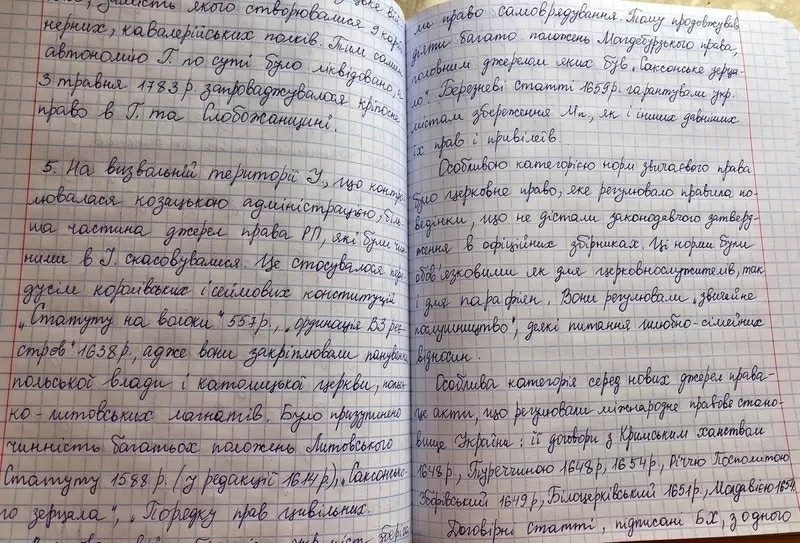 замість якого створювалися 9 кара
нерних, кавалерійських полків. Тим самим
автономію Г. по суті було ліквідовано, а
3 травня 1783 р. запроваджувалося кріпосне
право в Г. та Слобожанщині.
5. На визвальній території У, що контро
лювалася козацькою адміністрацією, біль
ша частина джерел права РП, які були чин
ними в У. скасовувалися. Це стосувалося пере
дусім королівських і сеймових конституцій
„Статуту на волоки" 557 р., „ординація ВЗ рее
стров" 1638 р., адже вони закріплювали панування
польської влади і католицької церкви, польсь
ко-литовських магнатів. Було призупинено
чинність багатьох положень Литовського
Статуту 1588 р. (у редакції 1614 р), „Саксонсько
го зерцала", „Порядку прав цивільних.
ми право самоврядування. Тому продовжував
діяти багато положень Магдебурзького права,
головним джерелом яких був „Саксонське зерца
ло". Березневі статті 1659 р. гарантували укр.
містам збереження Мп., як і інших давніших
їх прав і привілеїв.
Особливою категорією норм звичаєвого права
було церковне право, яке регулювало правила по-
ведінки, що не дістали законодавчого затверд-
ження в офіційних збірниках. Ці норми були
обов'язковими як для церковнослужителів, так
і для парафіян. Вони регулювали „звичайне
послушництво", деякі питання шлюбно-сімейних
відносин.
Особлива категорія серед нових джерел права-
це акти, що регулювали міжнародне правове стано-
вище Україна: її договори з Кримським ханством
1648 р., Туреччиною 1648 р, 1654 р., Річчю Посполитою
Зборівський 1649 р, Білоцерківський 1651 р., Молдавією 1654
Договірні статті, підписані БХ, з одного